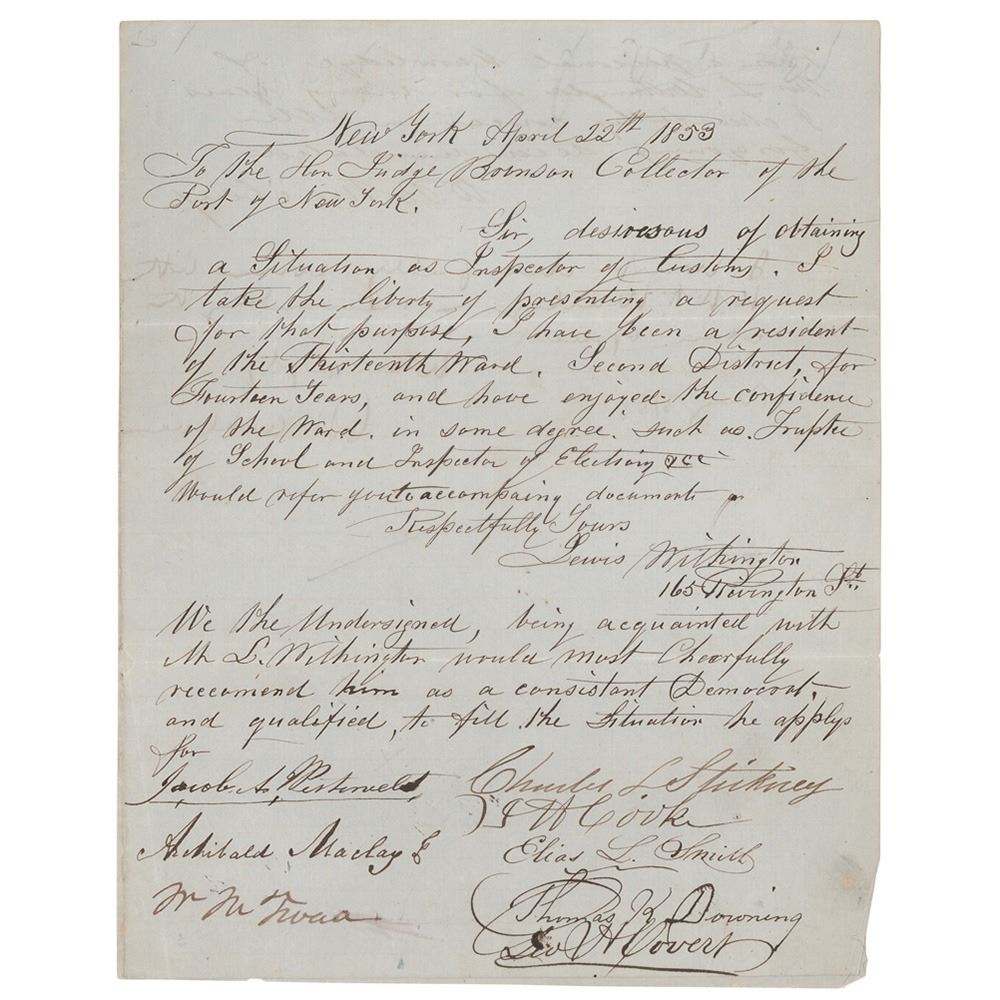 New York April 22th 1853
To the Hon Judge Bronson Collector of the
Port of New York.
Sir, desiresous of obtaining
a Situation as Inspector of Customs. I
take the liberty of presenting a request
for that purpose, I have been a resident
of the Thirteenth Ward. Second District, for
Fourteen Years, and have enjoyed the confidence
of the Ward. in some degree. such as. Trustee
of School and Inspector of Election &cc
Would refer you to accompaing documents
Respectfully Yours
Lewis Withington
165 Rivington St.
We the Undersigned, being acquainted with
Mr L. Withington would most Cheerfully
reccomend him as a consistant Democrat,
and qualified, to fill the Situation he applys
for
Jacob A. Westervelt Charles L Stickney
J H Cooke
Archibald Maclay Elias L. Smith
Wm M Tweed Thomas K Downing
Geo H Covert